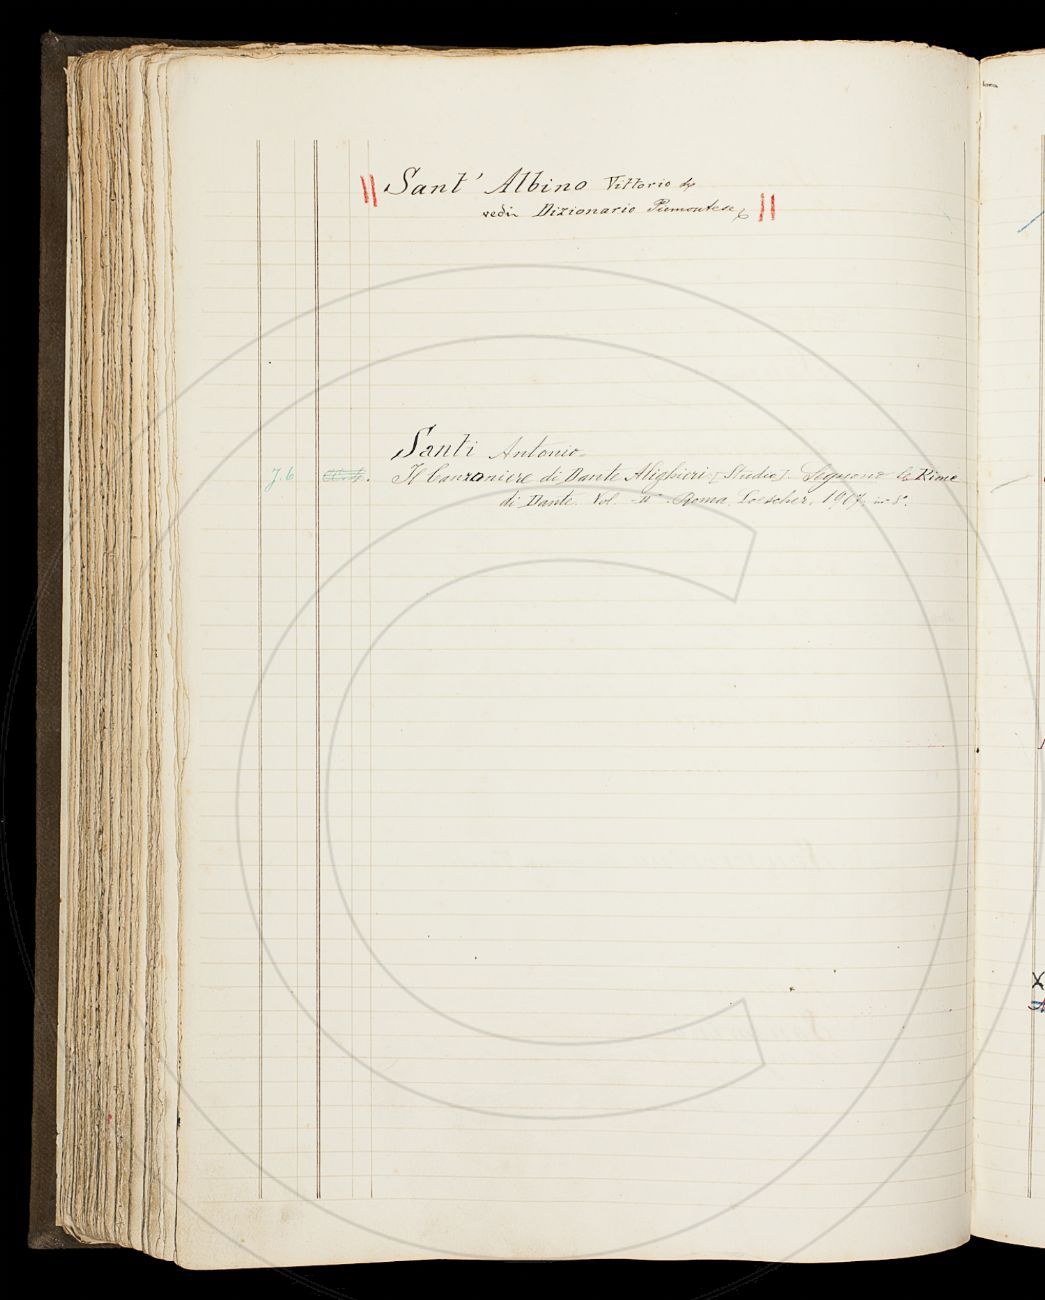 Sant' Albino Vittorio di
vedi Dizionario Piemontese
Santi Antonio
J. 6 Il Canzoniere di Dante Alighieri [Studio]. Seguono le Rime
di Dante. Vol. II°. Roma, Loescher, 1907, in 8°.